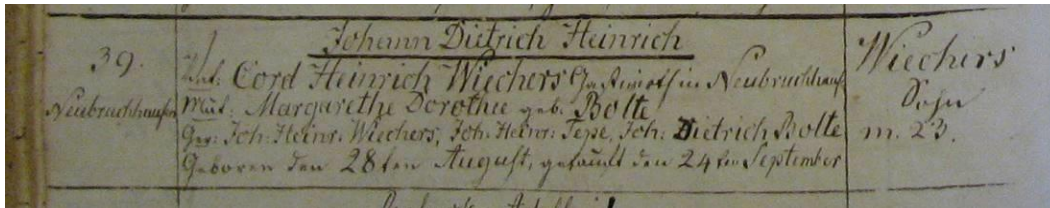 39.
Neubruchhausen
Johann Dietrich Heinrich
Vat: Cord Heinrich Wiechers Gastwirth in Neubruchhaus
Mut: Margarethe Dorothee geb. Bolte
Gev: Joh: Heinr: Wiechers, Joh: Heinr: Tepe, Joh: Dietrich Bolte
Geboren den 28ten August, getauft den 24ten September
Wiechers
Sohn
m. 23.